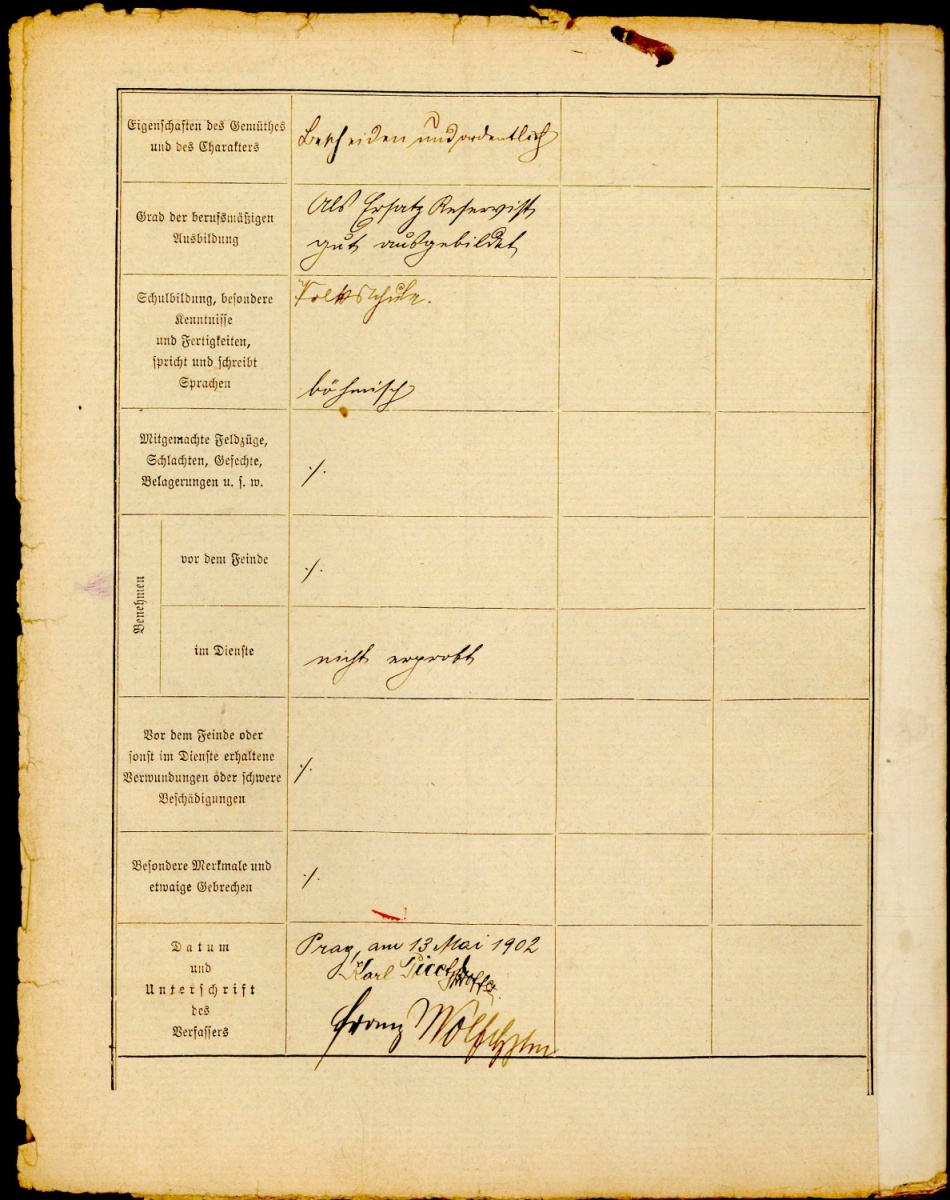 Eigenschaften des Gemüthes
und des Charakters
Bescheiden und ordentlich
Grad der berufsmäßigen
Ausbildung
Als Ersatz Reservist
gut ausgebildet
Schulbildung, besondere
Kenntnisse
und Fertigkeiten,
spricht und schreibt
Sprachen
Volksschule.
böhmisch
Mitgemachte Feldzüge,
Schlachten, Gefechte,
Belagerungen u. s. w.
⁒
Benehmen
vor dem Feinde
⁒
im Dienste
nicht erprobt
Vor dem Feinde oder
sonst im Dienste erhaltene
Verwundungen oder schwere
Beschädigungen
⁒
Besondere Merkmale und
etwaige Gebrechen
⁒
Datum
und
Unterschrift
des
Verfassers
Prag, am 13 Mai 1902
Karl
Franz